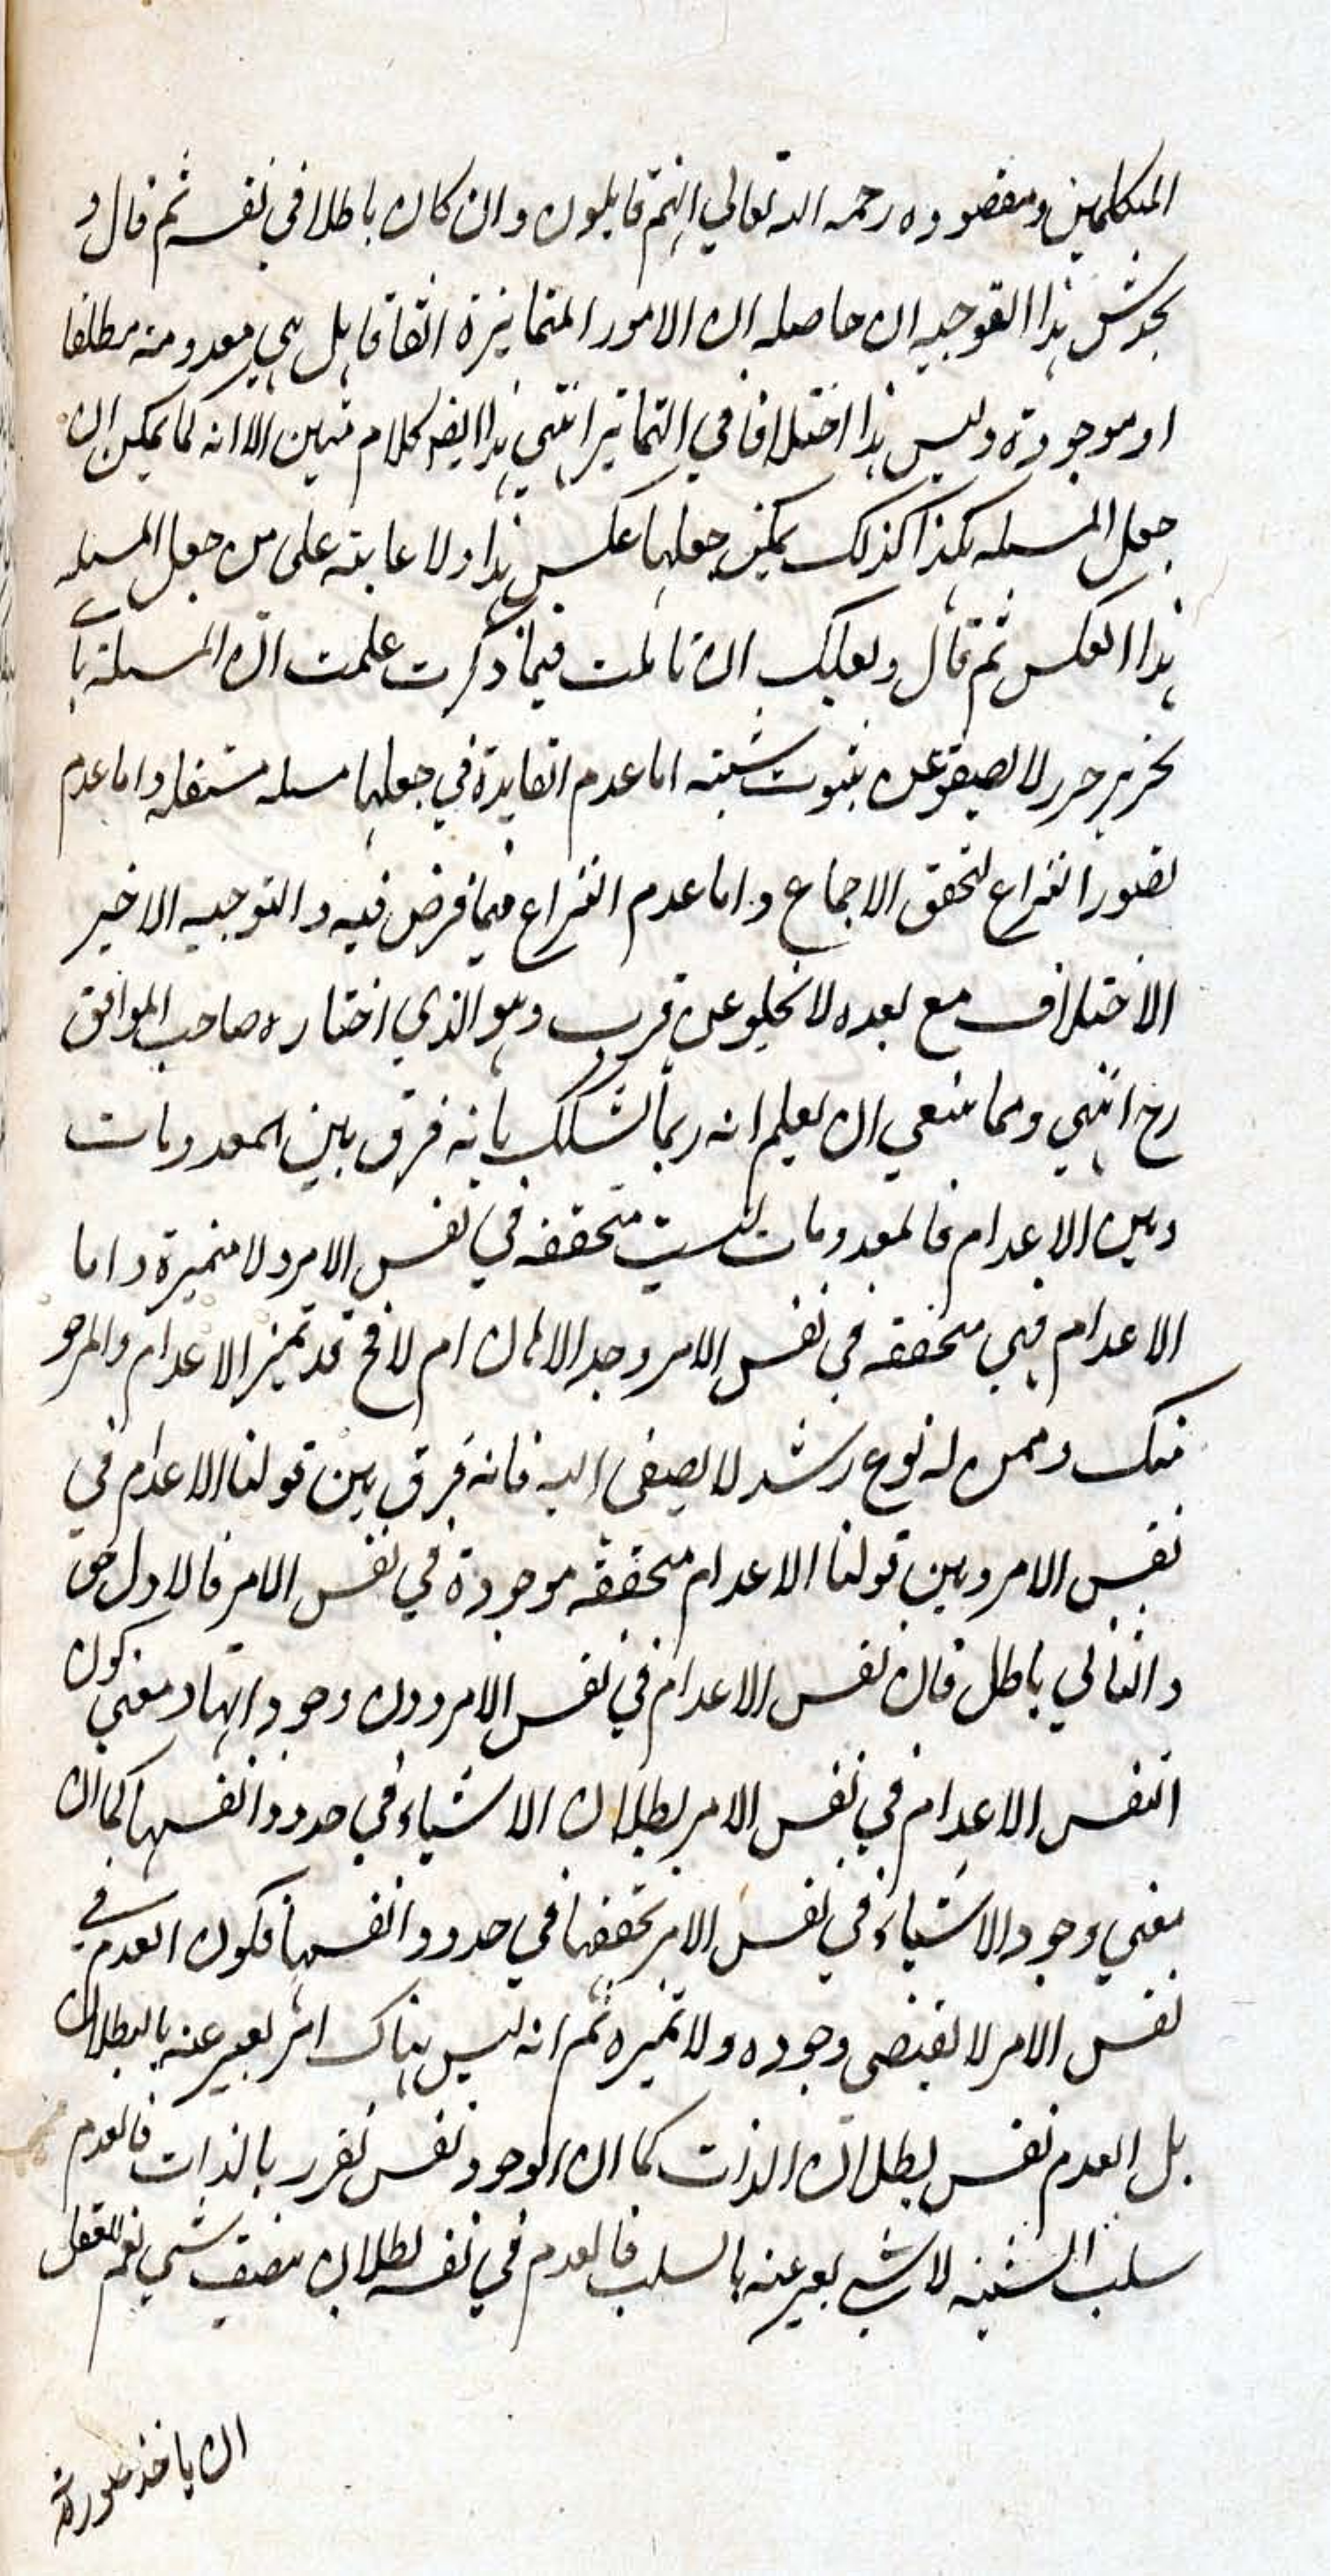 المتكلمين ومقصوده رحمه الله تعالي انهم قايلون وان كان باطلا في نفسه ثم قال و
يخدش هذا التوجيه ان حاصله ان الامور المتمايزة اتفاقا هل هي معدومة مطلقا
او موجودة وليس هذا اختلافا في التمايز انتهي هذا ايضا كلام متين الا انه كما يمكن ان
جعل المسئله هكذا كذلك يمكن جعلها عكس هذا ولا عابته على من جعل المسئله
هذا العكس ثم قال ولعلك ان تاملت فيما ذكرت علمت ان المسئلة باي
تحرير حرر لا يصفو عن ثبوت شبهة اما عدم الفايدة في جعلها مسئله مستقله واما عدم
تصور النزاع لتحقق الاجماع واما عدم النزاع فيما فرض فيه والتوجيه الاخير
الاختلاف مع بعده لا يخلو عن قرب وهو الذي اختاره صاحب المواقف
رح انتهي ومما ينبغي ان يعلم انه ربما يشكك بانه فرق بين المعدومات
وبين الاعدام فالمعدومات ليست متحققه في نفس الامر ولا متميزة واما
الاعدام فهي متحققه في نفس الامر وجد الاذهان ام لا فح قد تميز الاعدام والمرجو
منك وممن له نوع رشد لا يصغى اليه فانه فرق بين قولنا الاعدام في
نفس الامر وبين قولنا الاعدام متحققه موجودة في نفس الامر فالاول حق
والثاني باطل فان نفس الاعدام في نفس الامر دون وجوداتها ومعني كون
انفس الاعدام في نفس الامر بطلان الاشياء في حدود انفسها كما ان
معني وجود الاشياء في نفس الامر تحققها في حدود انفسها فكون العدم في
نفس الامر لا يقتضي وجوده ولا تميزه ثم انه ليس هناك امر يعبر عنه بالبطلان
بل العدم نفس بطلان الذات كما ان الوجود نفس تقرر بالذات فالعدم
سلب الشيئيه لا شي يعبر عنه بالسلب فالعدم في نفسه بطلان شي نعم للعقل
ان ياخذ صورة